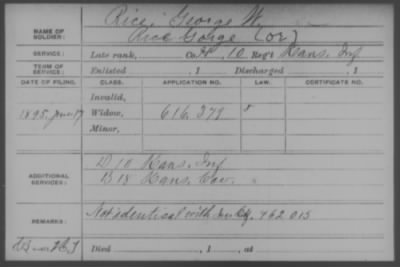 Rice, George W.
NAME OF SOLDIER: Rice Gorge (or)
SERVICE: Late rank, Co. H, 10 Reg't Kans. Inf
TERM OF SERVICE: Enlisted , 1 Discharged , 1
DATE OF FILING. CLASS. APPLICATION NO. LAW. CERTIFICATE NO.
Invalid,
1895, June 17 Widow, 616.379
Minor,
ADDITIONAL SERVICES: D 10 Kans. Inf
B 18 Kans. Cav.
REMARKS: Not identical with Inv Ctf. 762 013
Died , 1 , at